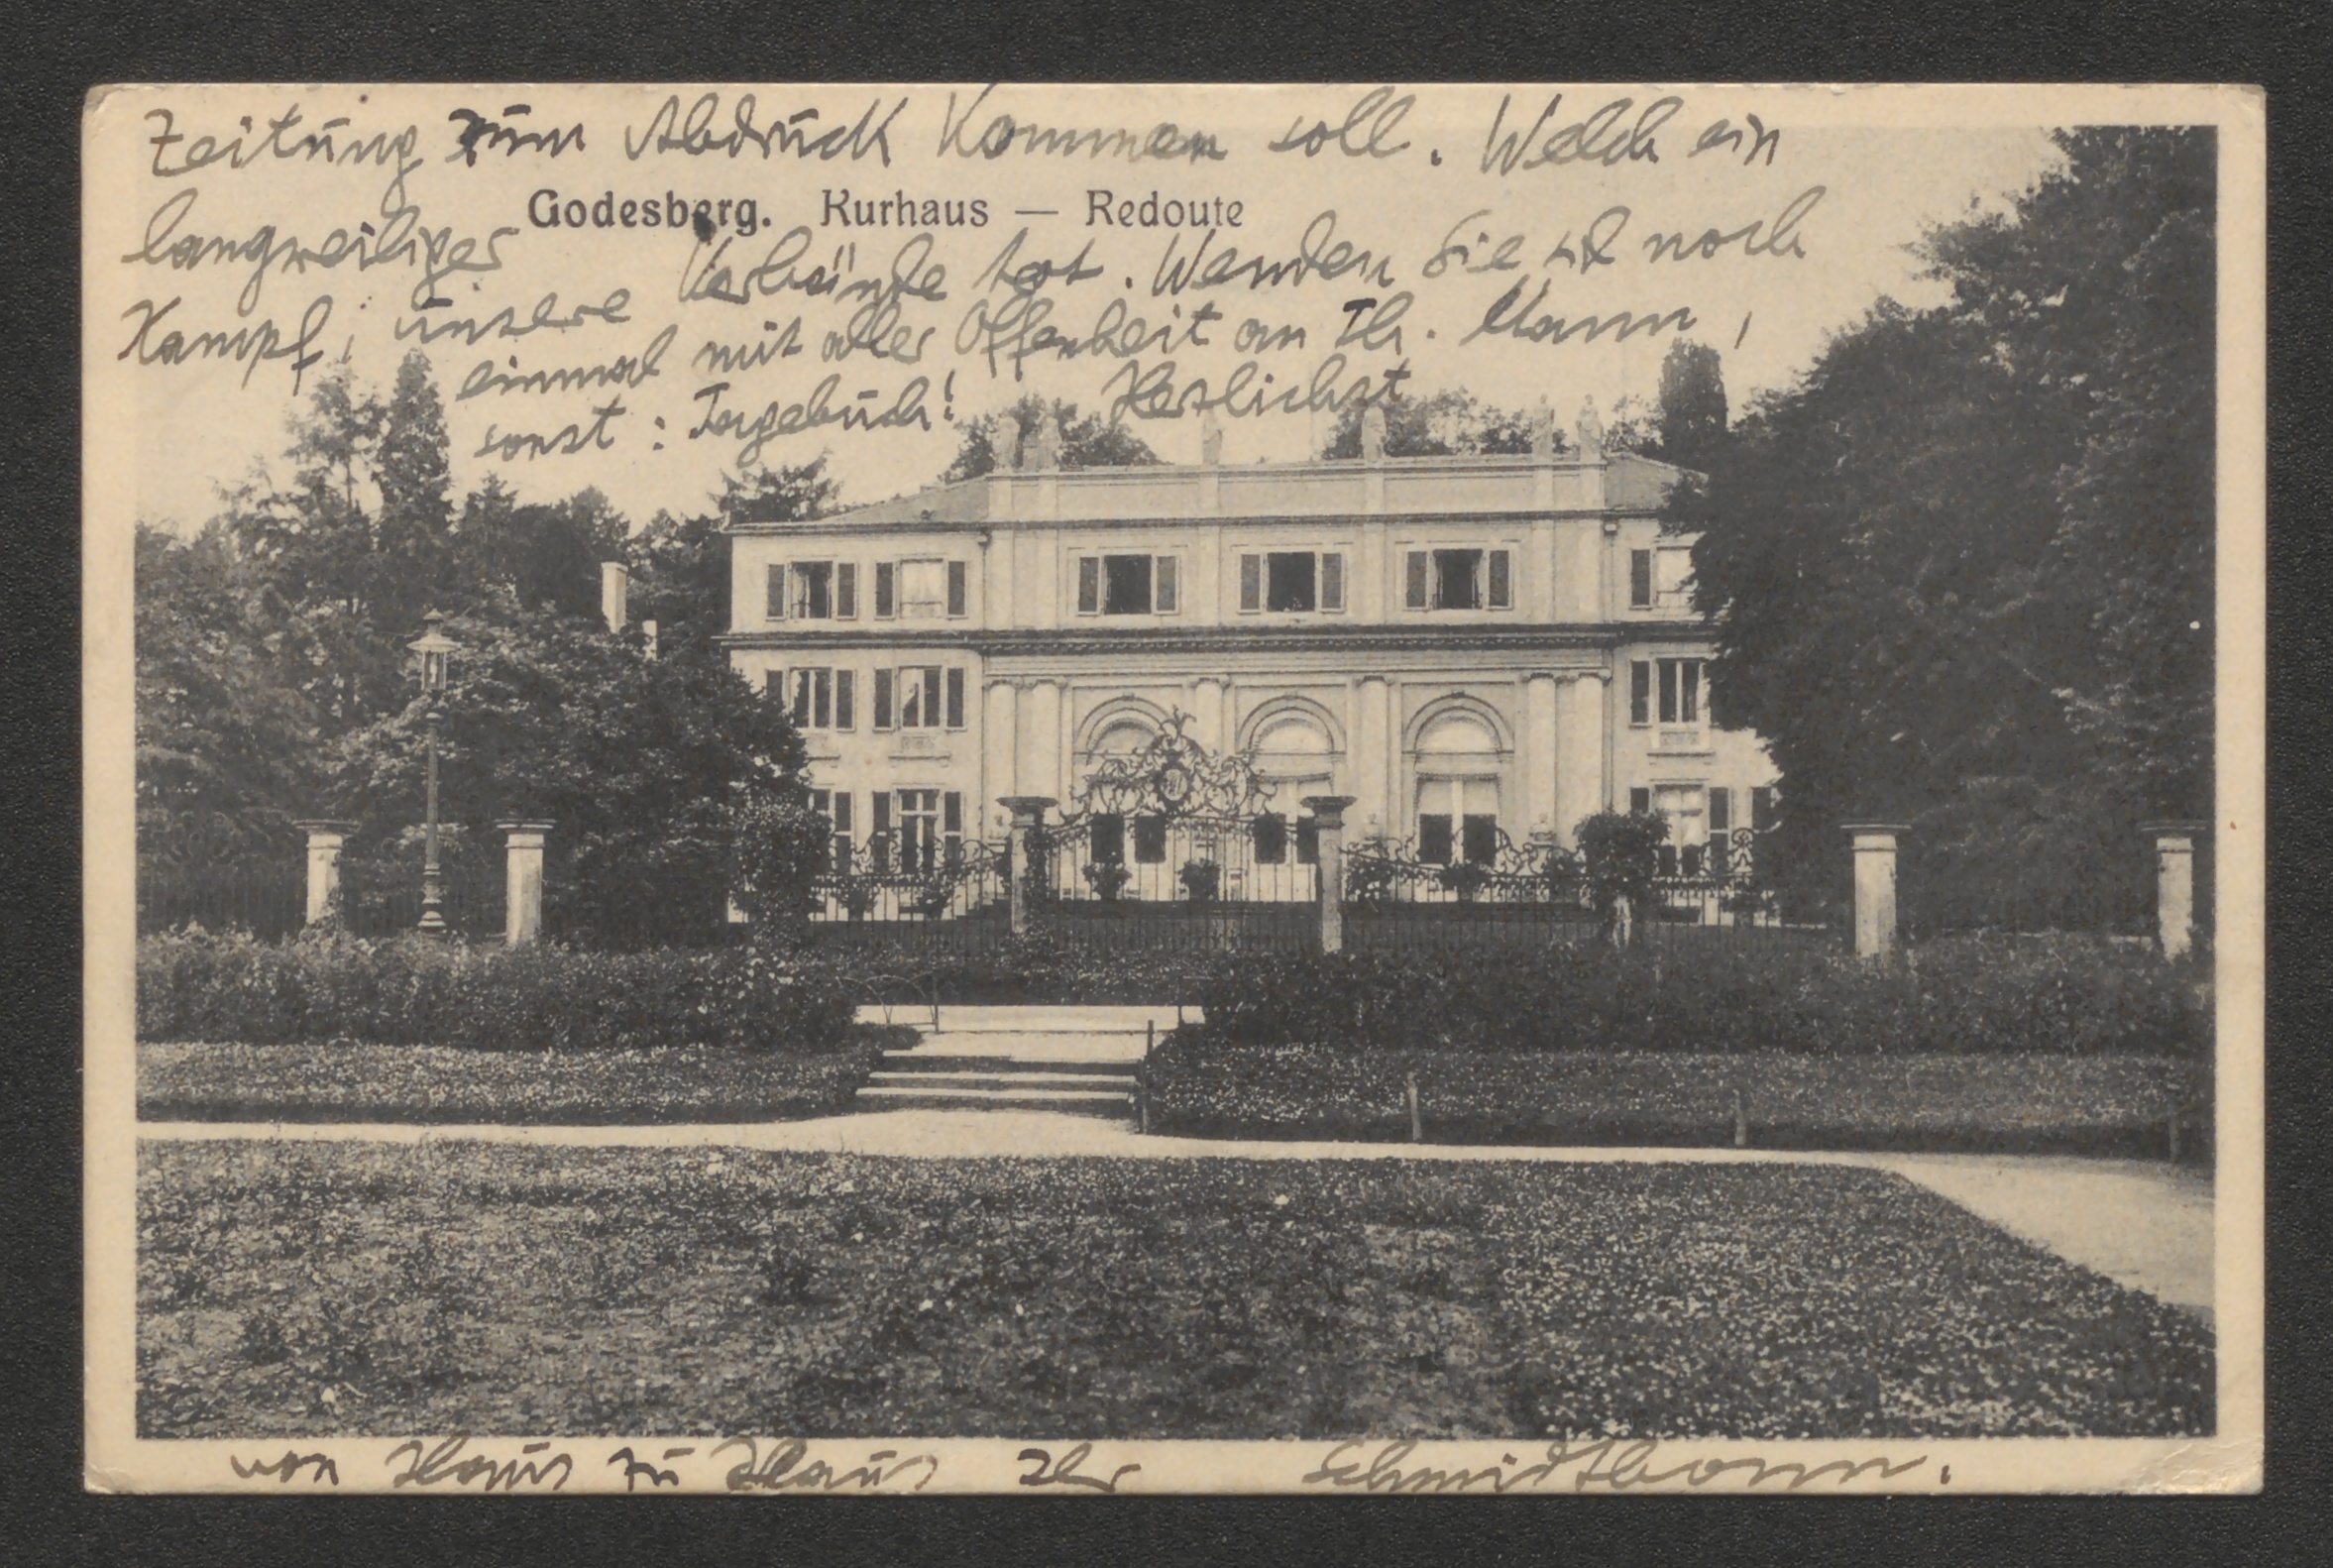 Zeitung zum Abdruck kommen soll. Welch ein
langweiliger
Godesberg. Kurhaus — Redoute
Kampf; unsere Verbände tot. Wenden Sie sich noch
einmal mit aller Offenheit an Th. Mann,
sonst: Tagebuch! Herzlichst
von Haus zu Haus Ihr Schmidtbonn.